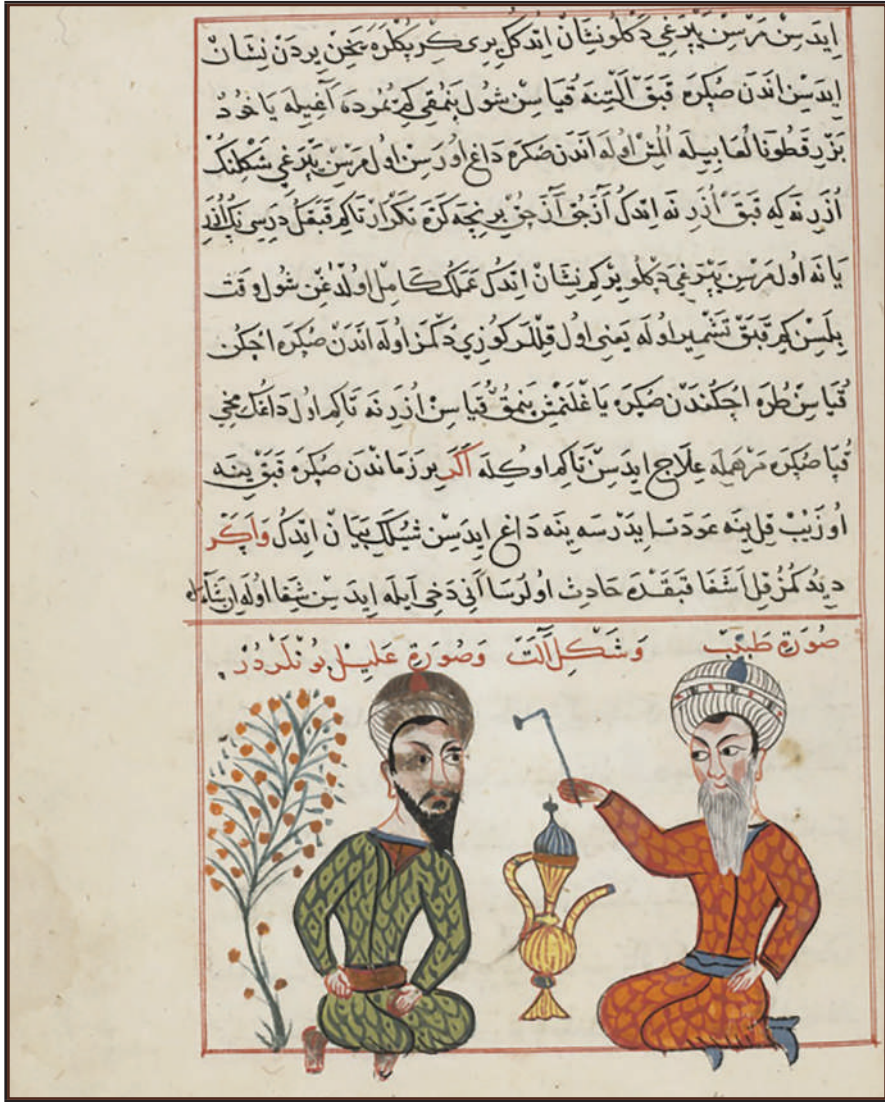 ایدسن مرسن یپرغی دکلو نشان اتدکل یری کربکلره یخن یردن نشان
ایدسن اندن صکره قبق التنه قیاسن شول پنمقی کم یمرده آغیله یاخود
بزر قطونا لعابیله المش اوله اندن صکره داغ اورسن اول مرسن یپرغی شکلنک
اذرنه که قبق اذرنه اتدک آزجق آزجق برنیجه کره تکرار تاکم قبقک درسی
یانه اول مرسن یپرغی دکلو یر کم نشان اتدک عملک کامل اولدغن شول وقت
بلسن کم قبق تشمیر اوله یعنی اول قللر کوزی دکمز اوله اندن صکره اجکن
قیاسن طره اجکندن صکره یاغلنمش پنمق قیاسن اذرنه تاکم اول داغک مخی
قپا صکره مرهمله علاج ایدسن تاکم اوکله اکر بر زماندن صکره قبق ینه
اوزیب قل ینه عودت ایدرسه ینه داغ ایدسن شیلک بیان اتدک واکر
دیدکمز قل اشفا قبقده حادث اولرسا انی دخی ایله ایدسن شفا اوله
صورة طبیب وشکل آلت وصورة علیل بونلردر